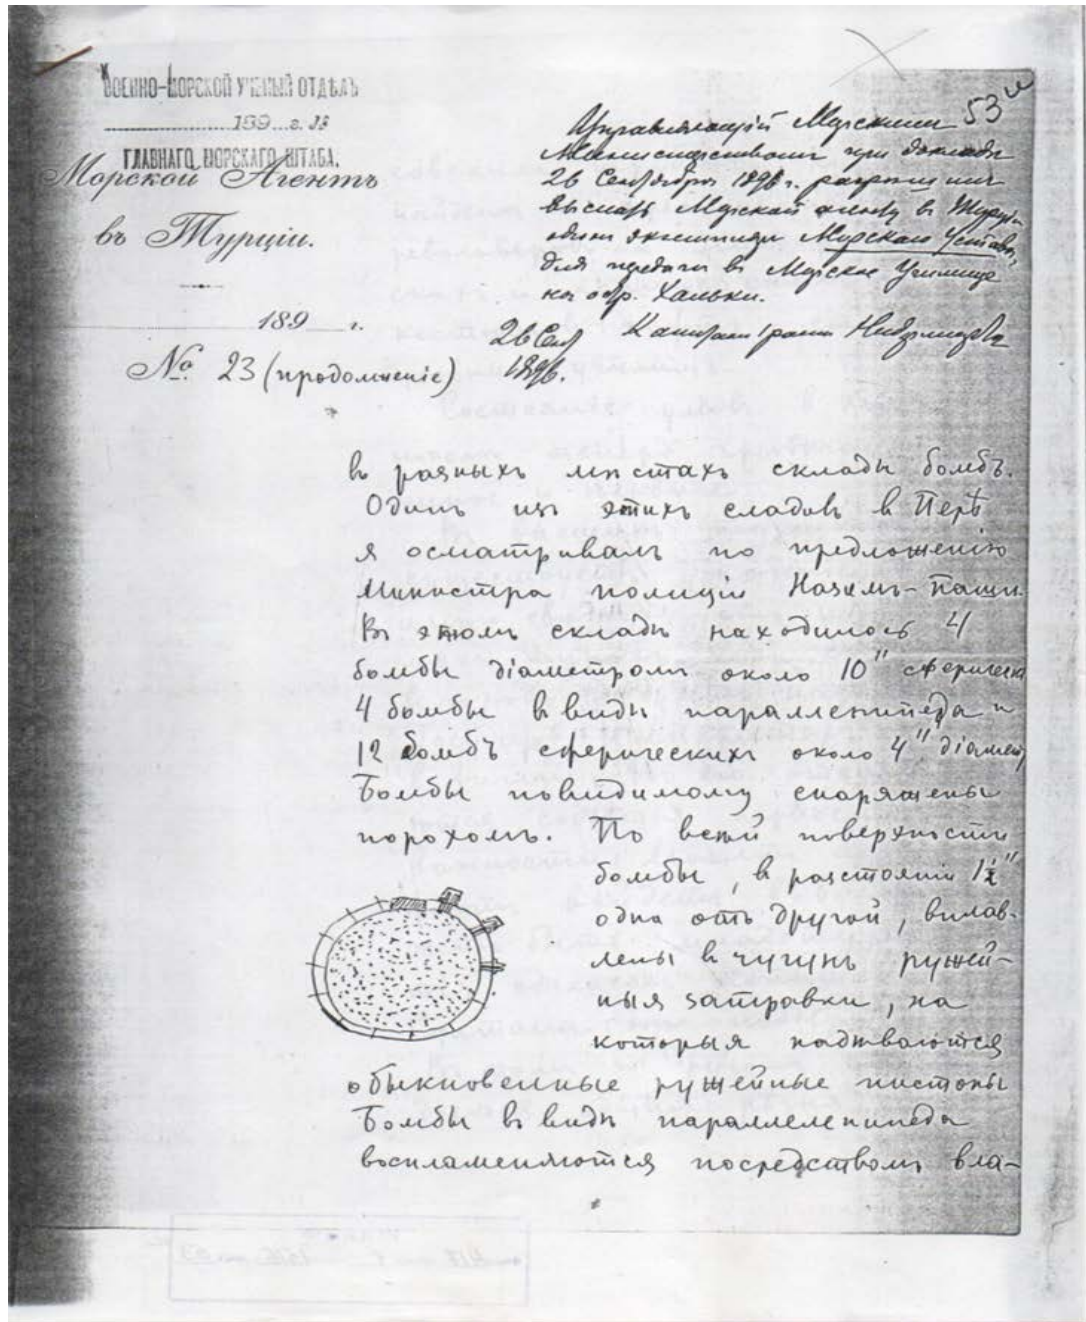 ВОЕННО-МОРСКОЙ УЧЕНЫЙ ОТДѢЛЪ
189 г.
ГЛАВНАГО МОРСКАГО ШТАБА.
Морской Агентъ
въ Турціи.
189 г.
№ 23 (продолженіе)
53
Управляющій Морскимъ
Министерствомъ при докладѣ
26 Сентября 1896 г. разрѣшилъ
выслать Морской агенту в Турціи
одинъ экземпляръ Морскаго Устава
для передачи в Морское Училище
на остр. Хальки.
26 Сент
1896.
Капитанъ I ранга
в разныхъ мѣстахъ склады бомбъ.
Одинъ изъ этихъ сладовъ в Перѣ
я осматривалъ по предложенію
Министра полиціи Назимъ-паши.
Въ этомъ складѣ находилось 4
бомбы діаметромъ около 10" сферическ
4 бомбы в видѣ параллепипеда и
12 бомбъ сферическихъ около 4" діамет
Бомбы повидимому снаряжены
порохомъ. По всей поверхности
бомбы, в разстояніи 1½"
одна отъ другой, вплав-
лены в чугунъ ружей-
ныя затравки, на
которыя надѣваются
обыкновенные ружейные пистоны
Бомбы в видѣ параллелепипеда
воспламеняются посредствомъ вла-